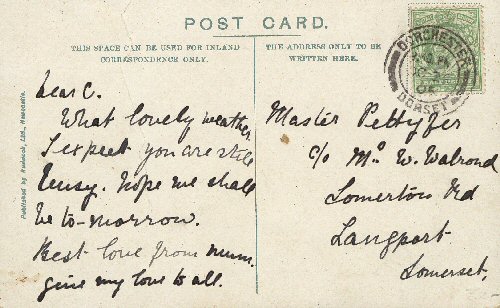 POST CARD.
THIS SPACE CAN BE USED FOR INLAND
CORRESPONDENCE ONLY.
THE ADDRESS ONLY TO BE
WRITTEN HERE.
DORCHESTER
DORSET
Dear C.
What lovely weather
I expect you are still
busy. Hope we shall
be to-morrow.
Best love from Mum.
give my love to all.
Master Pettyfer
c/o Mr W. Walrond
Somerton Rd
Langport
Somerset.
Published by Ruddock, Ltd., Newcastle.